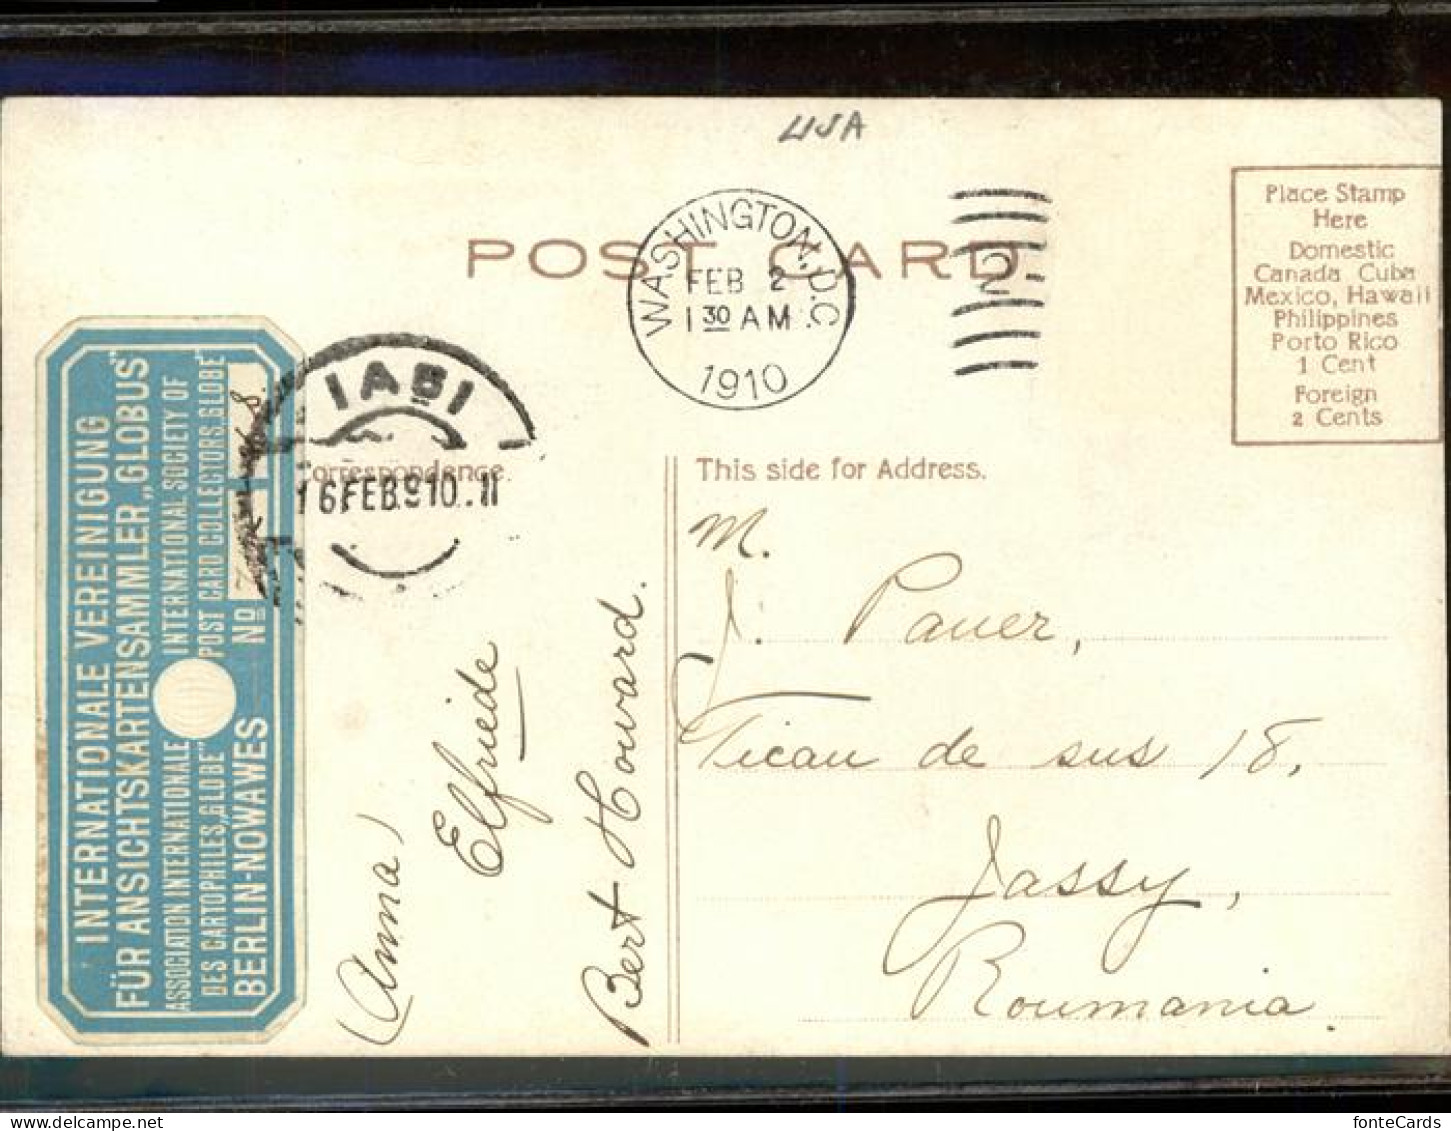 USA
POST CARD
WASHINGTON, D.C.
FEB 2
1 30 AM
1910
2
Place Stamp
Here
Domestic
Canada Cuba
Mexico, Hawaii
Philippines
Porto Rico
1 Cent
Foreign
2 Cents
INTERNATIONALE VEREINIGUNG
FÜR ANSICHTSKARTENSAMMLER „GLOBUS"
ASSOCIATION INTERNATIONALE
DES CARTOPHILES „GLOBE"
INTERNATIONAL SOCIETY OF
POST CARD COLLECTORS „GLOBE"
BERLIN-NOWAWES
No
IASI
16 FEB 910.11
Correspondence.
This side for Address.
(Anna)
Elfriede
Bert Howard.
M.
J. Pauer,
Ticau de sus 18,
Jassy,
Roumania.
fonteCards